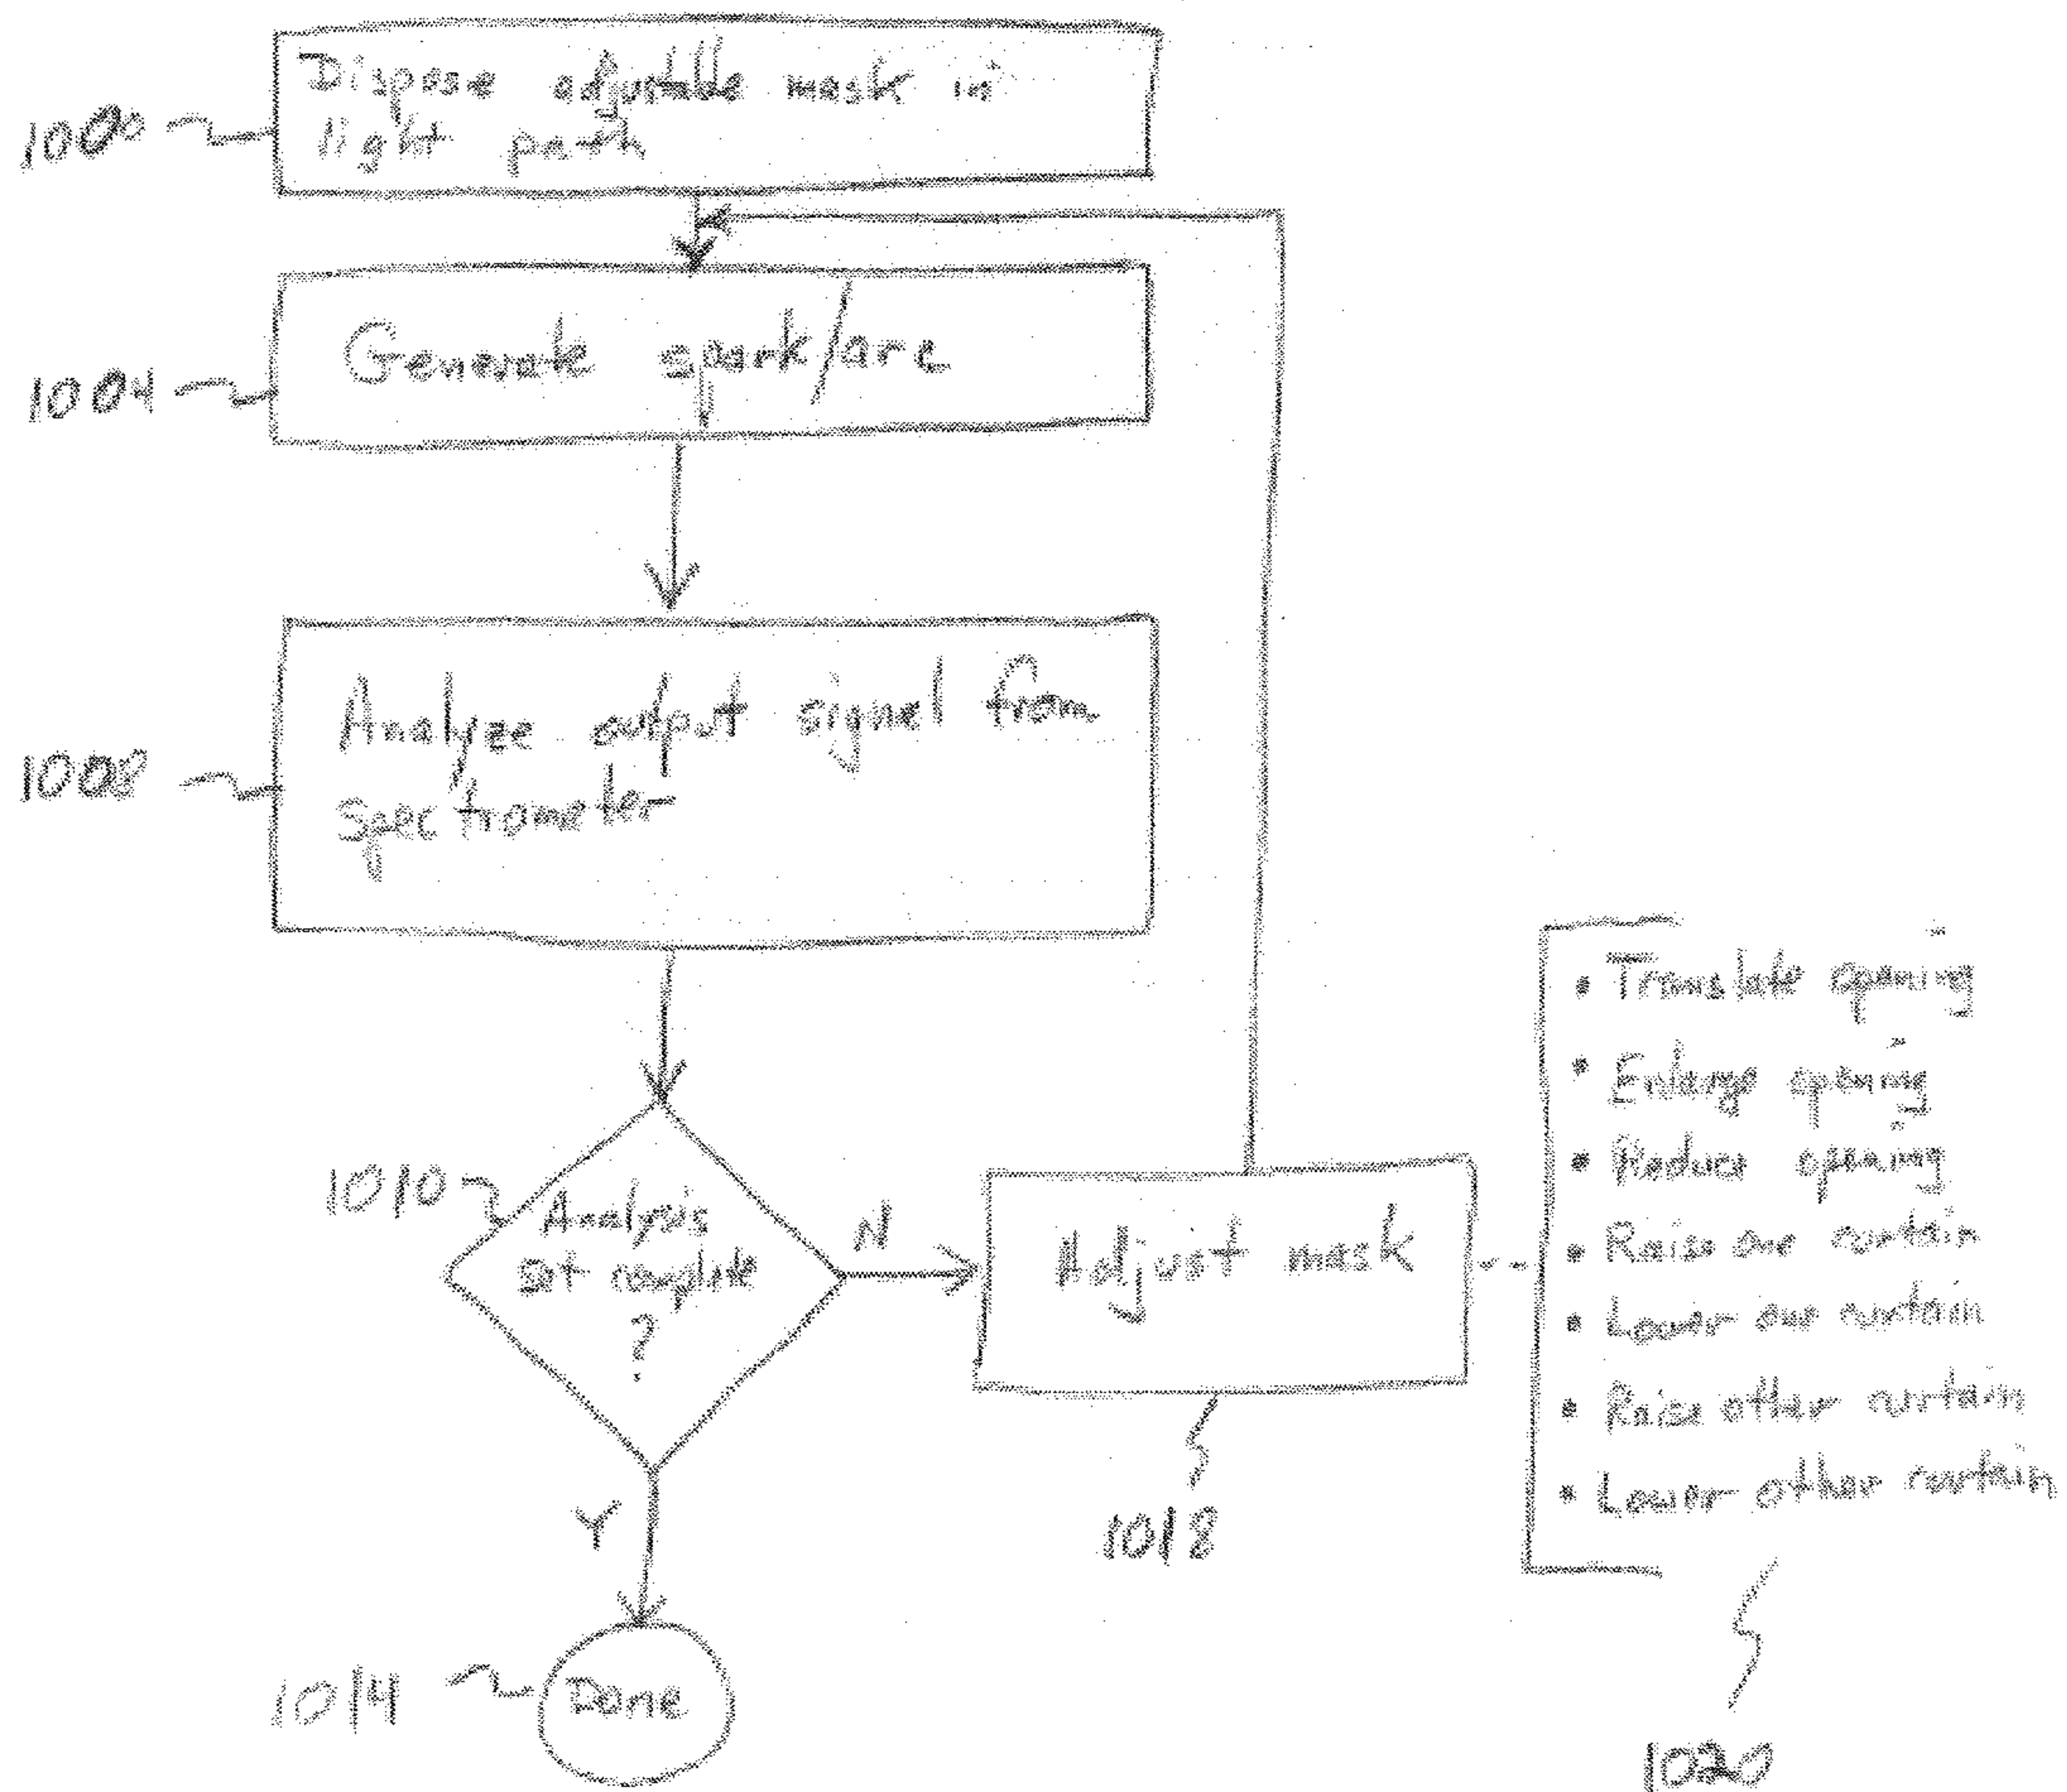 Dispose adjustable mask in
light path
1000
Generate spark/arc
1004
Analyze output signal from
Spectrometer
1008
1010
Analysis
set complete
?
N
Adjust mask
1018
Y
Done
1014
• Translate opening
• Enlarge opening
• Reduce opening
• Raise one curtain
• Lower one curtain
• Raise other curtain
• Lower other curtain
1020